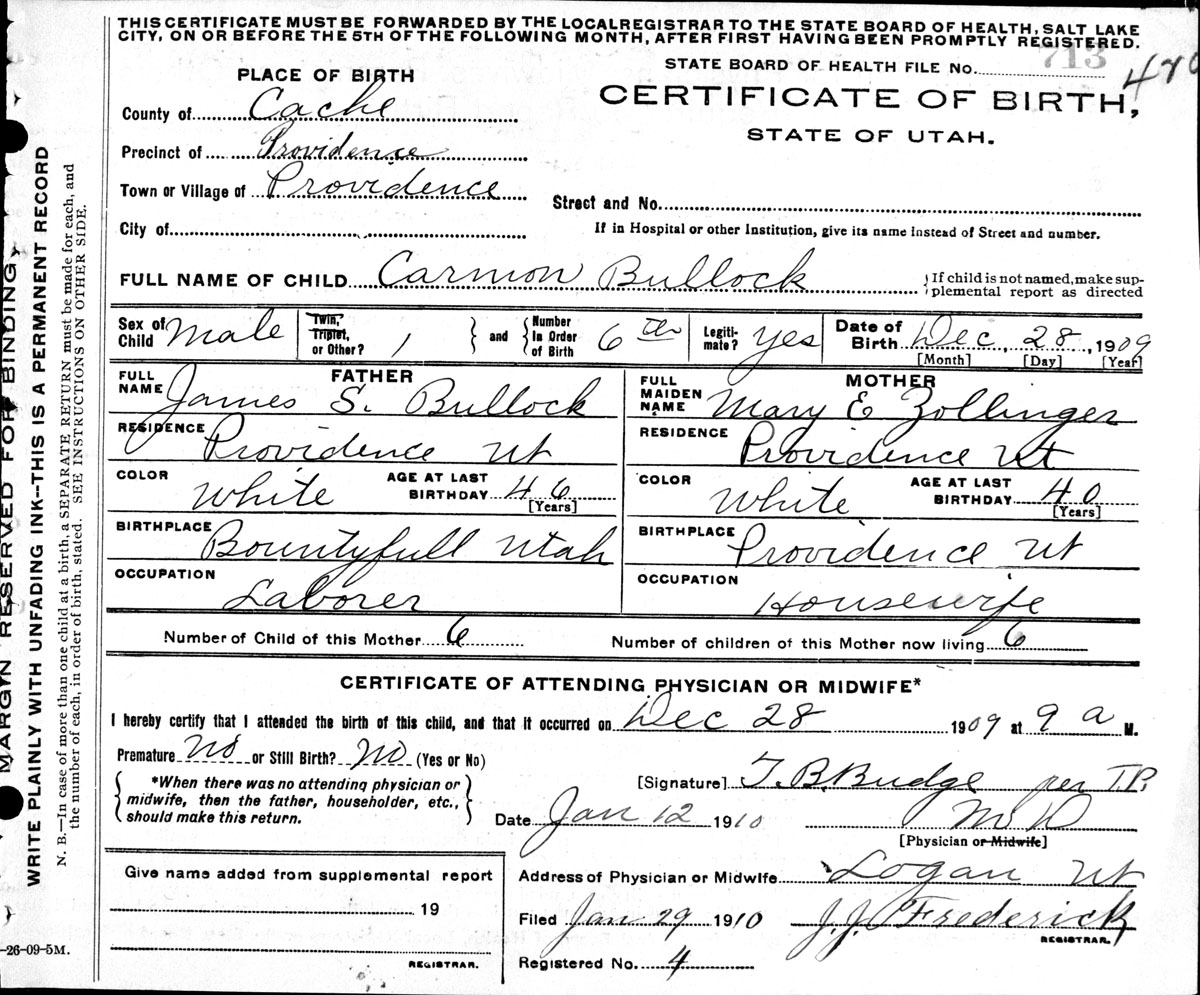 THIS CERTIFICATE MUST BE FORWARDED BY THE LOCAL REGISTRAR TO THE STATE BOARD OF HEALTH, SALT LAKE
CITY, ON OR BEFORE THE 5TH OF THE FOLLOWING MONTH, AFTER FIRST HAVING BEEN PROMPTLY REGISTERED.
STATE BOARD OF HEALTH FILE No. 713
PLACE OF BIRTH
CERTIFICATE OF BIRTH,
STATE OF UTAH.
County of Cache
Precinct of Providence
Town or Village of Providence
Street and No.
City of
If in Hospital or other Institution, give its name instead of Street and number.
FULL NAME OF CHILD Carmon Bullock
If child is not named, make sup-
plemental report as directed
Sex of Child Male
Twin, Triplet, or Other? 1
and
Number in Order of Birth 6th
Legiti-mate? yes
Date of Birth Dec, 28, 1909
[Month] [Day] [Year]
FATHER
FULL NAME James S. Bullock
RESIDENCE Providence Ut
COLOR White
AGE AT LAST BIRTHDAY 46
[Years]
BIRTHPLACE Bountyfull Utah
OCCUPATION Laborer
MOTHER
FULL MAIDEN NAME Mary E Zollinger
RESIDENCE Providence Ut
COLOR White
AGE AT LAST BIRTHDAY 40
[Years]
BIRTHPLACE Providence Ut
OCCUPATION Housewife
Number of Child of this Mother 6
Number of children of this Mother now living 6
CERTIFICATE OF ATTENDING PHYSICIAN OR MIDWIFE*
I hereby certify that I attended the birth of this child, and that it occurred on Dec 28 1909 at 9 a M.
Premature No or Still Birth? No (Yes or No)
*When there was no attending physician or
midwife, then the father, householder, etc.,
should make this return.
[Signature] T. B. Budge per T.P.
Date Jan 12 1910 M D
[Physician or Midwife]
Address of Physician or Midwife Logan Ut
Filed Jan 29 1910 J.J. Frederick
REGISTRAR.
Registered No. 4
Give name added from supplemental report
19
REGISTRAR.
MARGIN RESERVED FOR BINDING
WRITE PLAINLY WITH UNFADING INK--THIS IS A PERMANENT RECORD
N. B.—In case of more than one child at a birth, a SEPARATE RETURN must be made for each, and
the number of each, in order of birth, stated. SEE INSTRUCTIONS ON OTHER SIDE.
-26-09-5M.